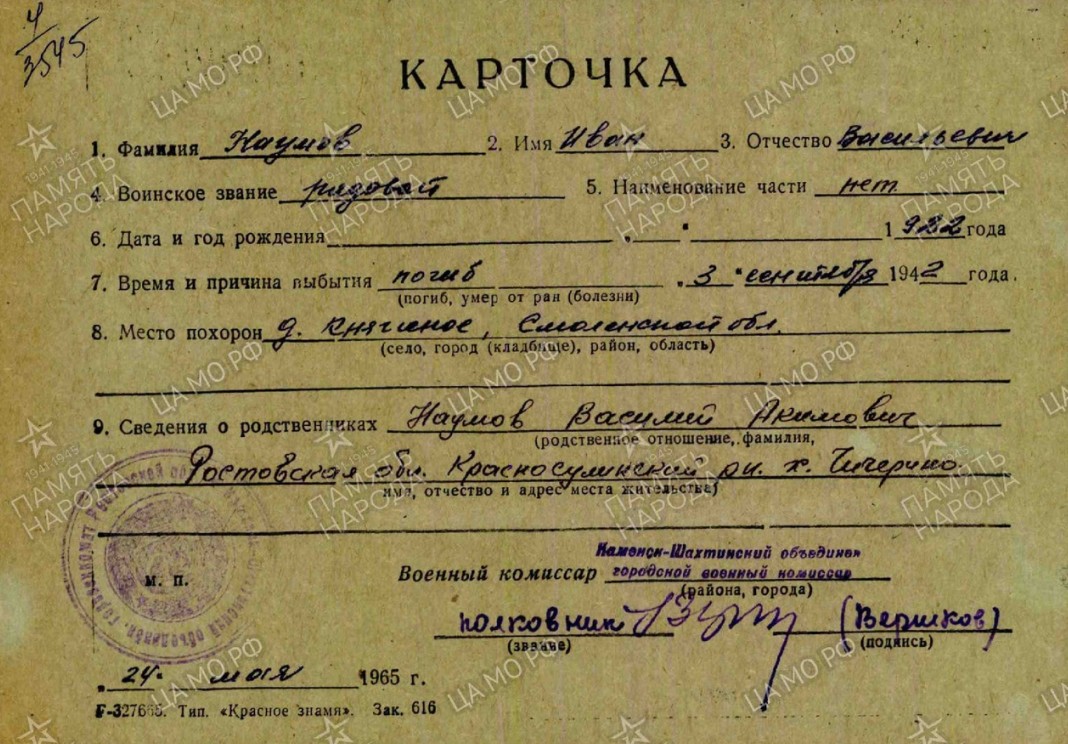 4
3545
КАРТОЧКА
1. Фамилия Наумов 2. Имя Иван 3. Отчество Васильевич
4. Воинское звание рядовой 5. Наименование части нет
6. Дата и год рождения 1922 года
7. Время и причина выбытия погиб 3 сентября 1942 года.
(погиб, умер от ран (болезни)
8. Место похорон д. Княжное, Смоленской обл.
(село, город (кладбище), район, область)
9. Сведения о родственниках Наумов Василий Акимович
(родственное отношение, фамилия,
Ростовская обл. Красносулинский рн. х. Чичерино
имя, отчество и адрес места жительства)
Каменск-Шахтинский объединен
м. п. Военный комиссар городской военный комиссар
(района, города)
полковник (Вершков)
(звание) (подпись)
24 мая 1965 г.
Г-327665. Тип. «Красное знамя». Зак. 616
ЦА МО РФ
1941-1945
ПАМЯТЬ НАРОДА